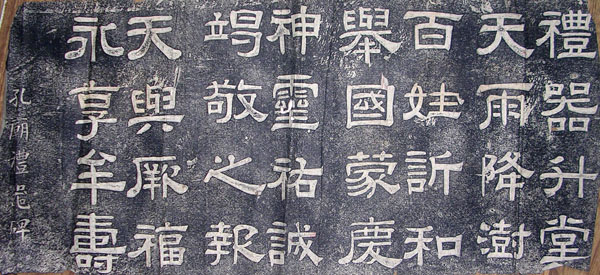 禮器升堂
天雨降澍
百姓訢和
舉國蒙慶
神靈祐誠
竭敬之報
天與厥福
永享牟壽
孔廟禮器碑